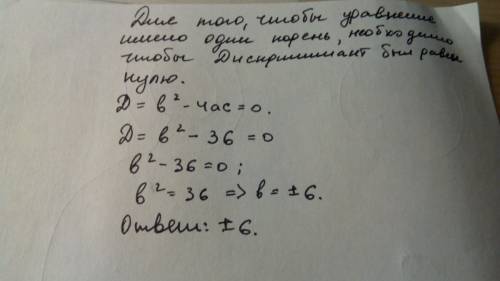 Для того, чтобы уравнение
имело один корень, необходимо
чтобы Дискриминант был равен
нулю.
D = b² - 4ac = 0.
D = b² - 36 = 0
b² - 36 = 0;
b² = 36 => b = ±6.
Ответ: ±6.